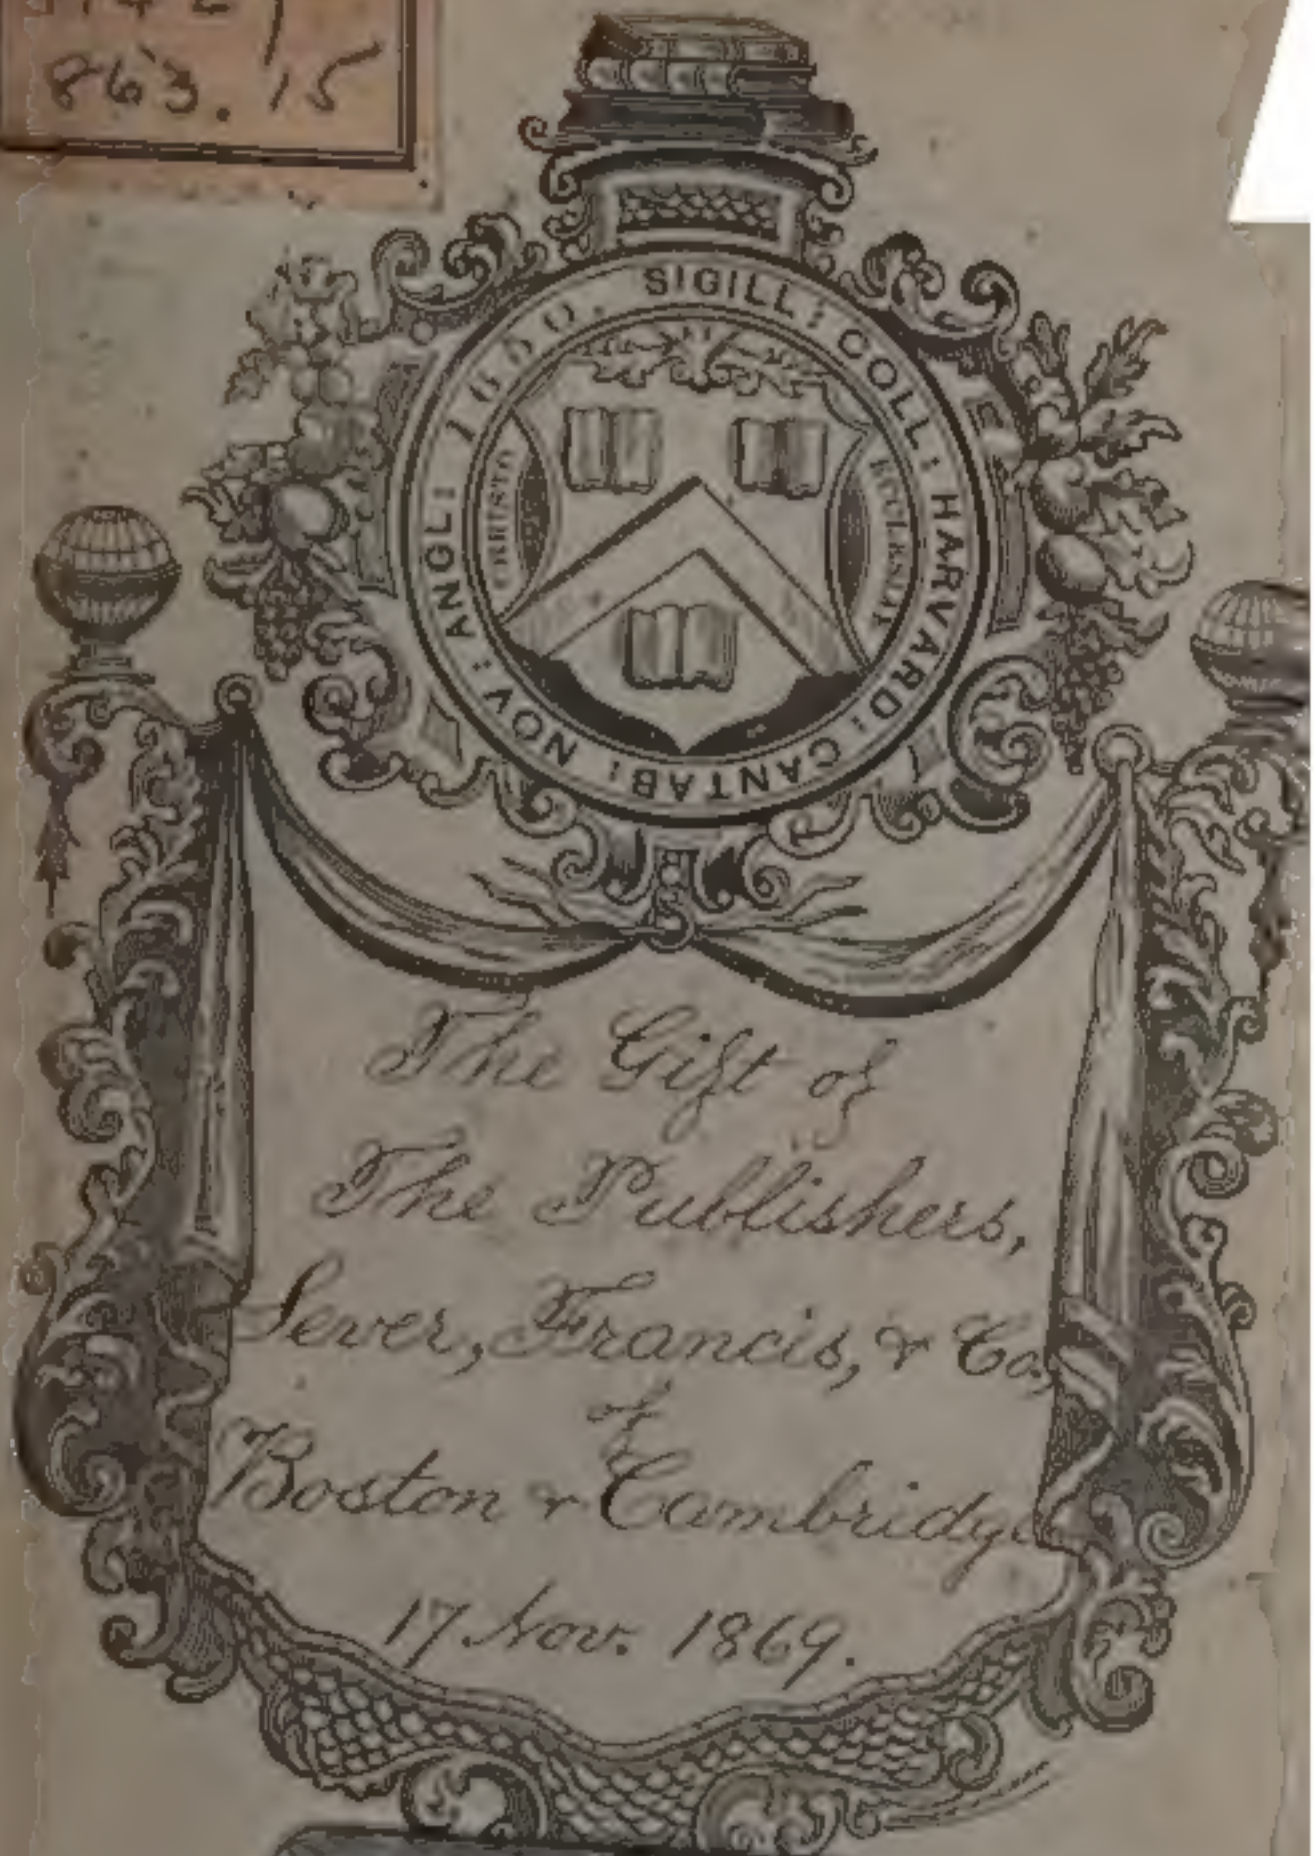 863.15
SIGILL: COLL: HARVARD: CANTAB: NOV: ANGL: 1650.
CHRISTO
ECCLESIAE
The Gift of
The Publishers,
Sever, Francis, & Co.,
of
Boston & Cambridge
17 Nov. 1869.